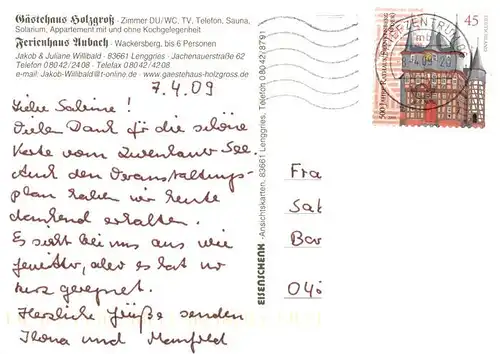 Gästehaus Holzgroß - Zimmer DU/WC, TV, Telefon, Sauna,
Solarium, Appartement mit und ohne Kochgelegenheit
Ferienhaus Aubach - Wackersberg, bis 6 Personen
Jakob & Juliane Willibald · 83661 Lenggries · Jachenauerstraße 62
Telefon 08042/2408 · Telefax 08042/4208
e-mail: Jakob-Willibald@t-online.de · www.gaestehaus-holzgross.de
7.4.09
Liebe Sabine!
Vielen Dank für die schöne
Karte vom Zwenkauer See.
Auch den Veranstaltungs-
plan haben wir heute
dankend erhalten.
Es sieht bei uns aus wie
Gewitter, aber es hat nur
kurz geregnet.
Herzliche Grüße senden
Ilona und Manfred
EISENSCHENK - Ansichtskarten, 83661 Lenggries, Telefon 08042/8791
Fra
Sab
Bar
04
BRIEFZENTRUM
45
DEUTSCHLAND